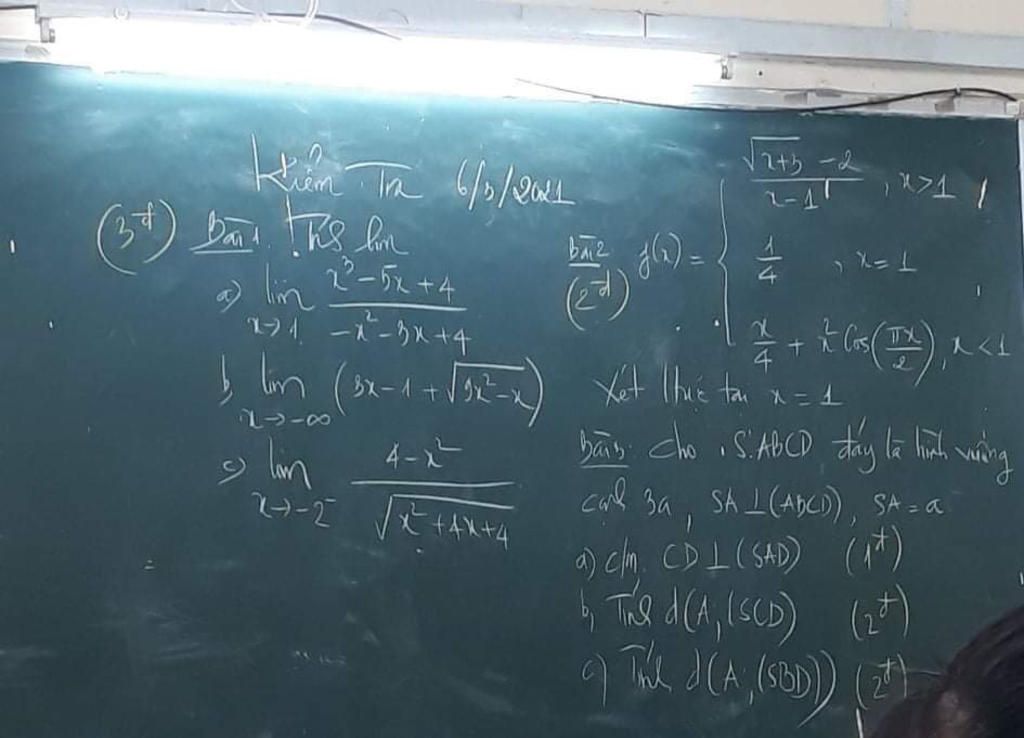 Kiểm Tra 6/3/2021
(3đ) Bài 1. Tính lim
a) lim x→1 (x³ - 5x + 4)/(-x² - 3x + 4)
b) lim x→-∞ (3x - 1 + √(9x² - x))
c) lim x→-2⁻ (4 - x²)/√(x² + 4x + 4)
Bài 2 (2đ) f(x) = { (√(x+3) - 2)/(x - 1), x > 1
1/4, x = 1
x/4 + x² Cos(πx/2), x < 1
Xét tại x = 1
Bài 3: Cho S.ABCD đáy là hình vuông
cạnh 3a, SA ⊥ (ABCD), SA = a
a) c/m. CD ⊥ (SAD) (1đ)
b) Tính d(A, (SCD) (2đ)
c) Tính d(A, (SBD)) (2đ)